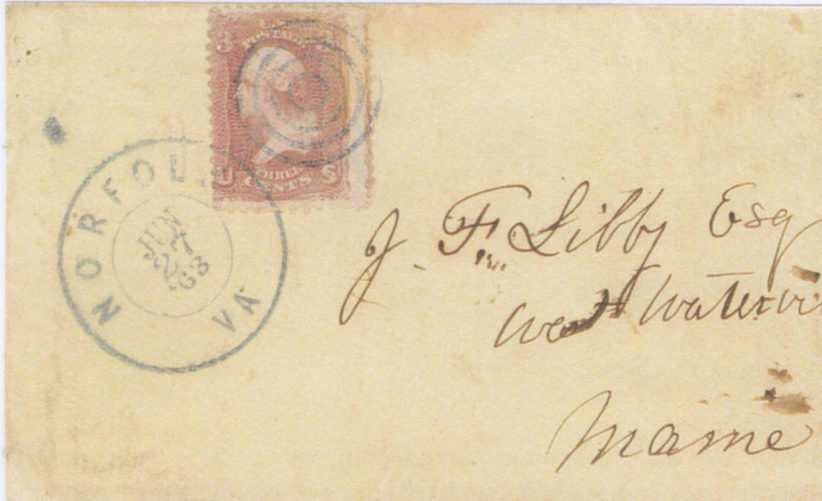 3 3
U.S. POSTAGE
THREE
CENTS
U S
NORFOLK
JUN
27
'63
VA
J. F. Libby Esq
West Watervi
Maine